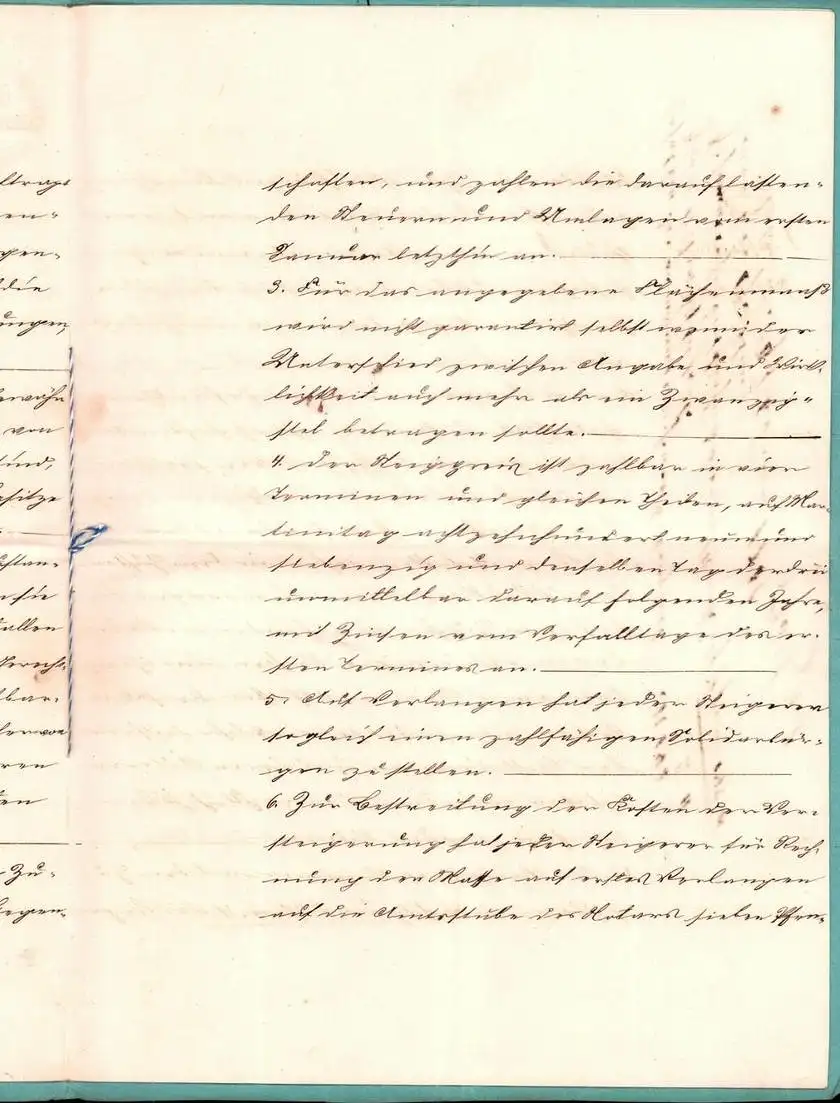 ltrags
en-
gen-
die
ungen,
ewähr
von
sind,
esitze
stan-
sie
allen
barn
eren
en
Zu-
iegen-
schaften, und zahlen die darauf lasten-
den Steuern und Umlagen vom ersten
Januar letzthin an.
3. Für das angegebene Flächenmaaß
wird nicht garantirt selbst wenn der
Unterschied zwischen Angabe und Wirk-
lichkeit auch mehr als ein Zwanzig-
stel betragen sollte.
4. Der Steigpreis ist zahlbar in vier
Terminen und gleichen Theilen, auf Mar-
tinitag achtzehnhundert neunund
siebenzig und denselben Tag der drei
unmittelbar darauf folgenden Jahre,
mit Zinsen vom Verfalltage des er-
sten Termines an.
5. Auf Verlangen hat jeder Steigerer
sogleich einen zahlfähigen Solidarbür-
gen zu stellen.
6. Zur Bestreitung der Kosten der Ver-
steigerung hat jeder Steigerer für Rech-
nung der Masse auf erstes Verlangen
auf die Amtsstube des Notars sieben Pfen-